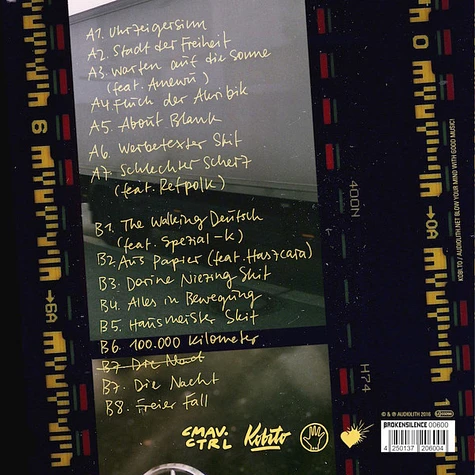 A1. Uhrzeigersinn
A2. Stadt der Freiheit
A3. Warten auf die Sonne
(feat. Amewu)
A4. Fluch der Akribik
A5. About Blank
A6. Werbetexter Skit
A7. Schlechter Scherz
(feat. Refpolk)
B1. The Walking Deutsch
(feat. Spezial-K)
B2. Aus Papier (feat. Haszcara)
B3. Dorine Niezing Skit
B4. Alles in Bewegung
B5. Hausmeister Skit
B6. 100.000 Kilometer
B7. Die Nact
B7. Die Nacht
B8. Freier Fall
CMAV.
CTRL
Kobito
400N
H74
KOBI.TO / AUDIOLITH.NET BLOW YOUR MIND WITH GOOD MUSIC!
© & ℗ AUDIOLITH 2016
BROKENSILENCE 00600
4 250137 206004